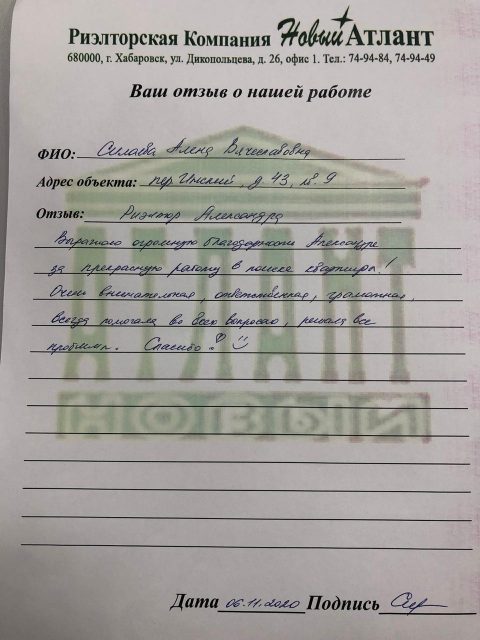 Риэлторская Компания Новый Атлант
680000, г. Хабаровск, ул. Дикопольцева, д. 26, офис 1. Тел.: 74-94-84, 74-94-49
Ваш отзыв о нашей работе
ФИО: Силаева Алена Вячеславовна
Адрес объекта: пер Инский, д 43, кв. 9
Отзыв: Риэлтор Александра
Выражаю огромную благодарность Александре
за прекрасную работу в поиске квартиры!
Очень внимательная, ответственная, грамотная.
Всегда помогала во всех вопросах, решала все
проблемы. Спасибо!
АТЛАНТ
Дата 06.11.2020 Подпись